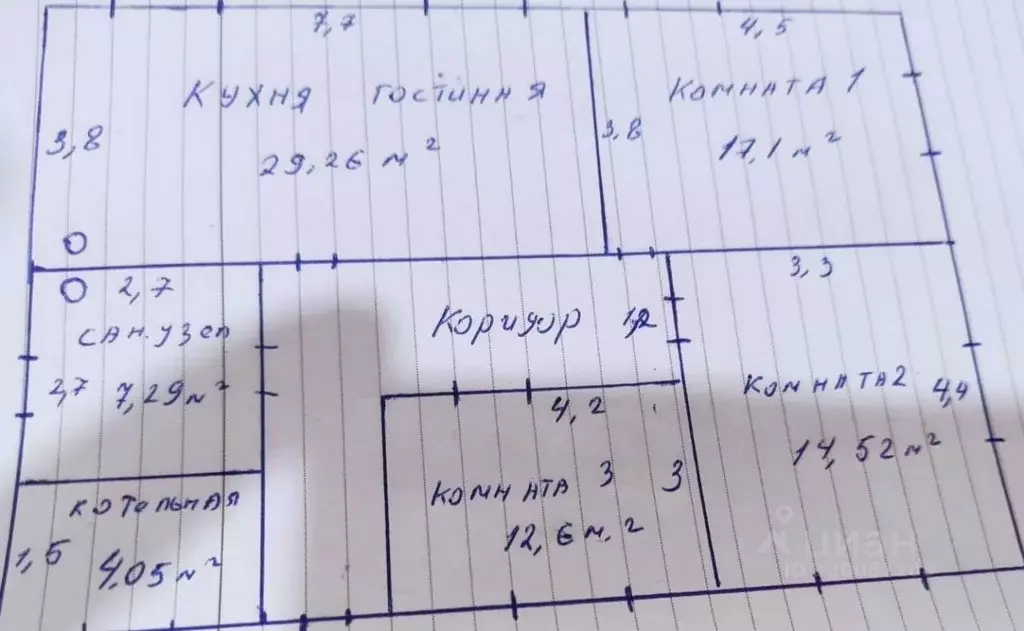 7,7
4,5
Кухня гостинная
Комната 1
3,8
3,8
29,26 м²
17,1 м²
2,7
3,3
сан.узел
Коридор
1,2
2,7
7,29 м²
Комната 2
4,4
4,2
14,52 м²
Комната 3
3
котольная
12,6 м.²
1,5
4,05 м²
ЦИАН